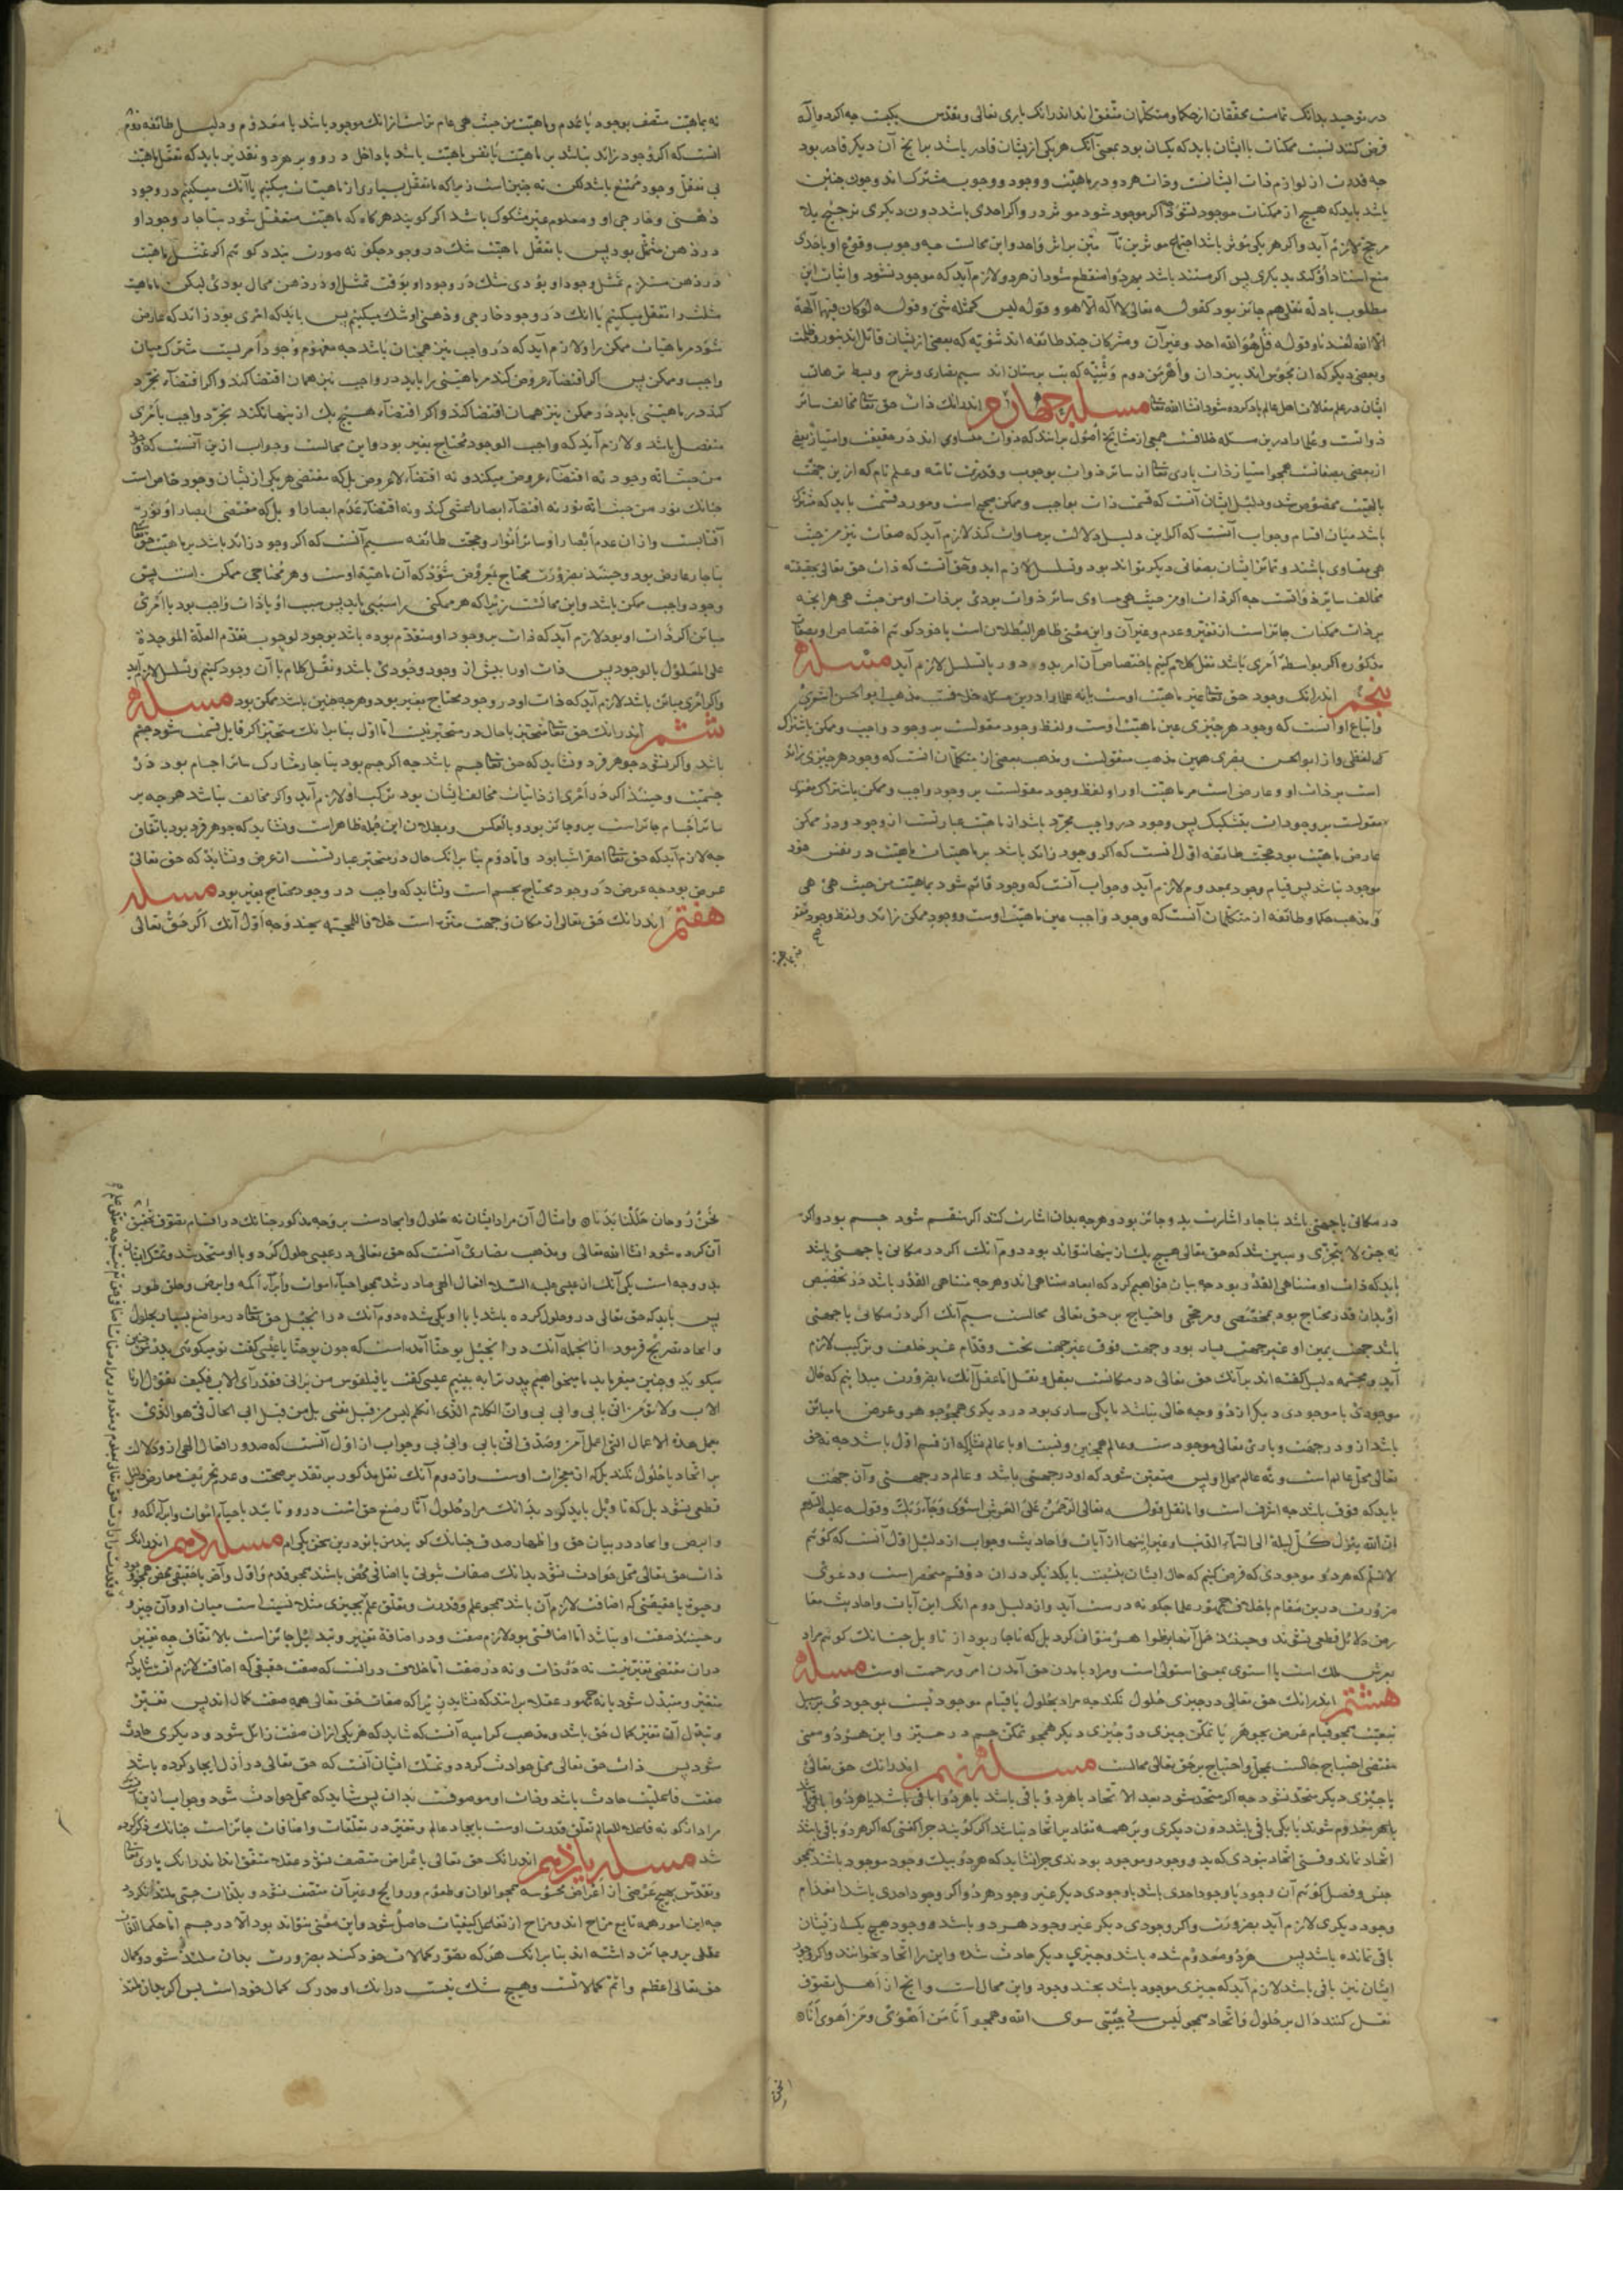 در توحید بدانک تمامت محققان از حکما و متکلمان متفق اند اندرانک باری تعالی و تقدس یکیست چه اکر دو اله
فرض کنند نسبت ممکنات با ایشان باید که یکسان بود بمعنی آنک هر یکی از ایشان قادر باشد بر ایجاد آن دیکر قادر بود
چه قدرت از لوازم ذات ایشانست وذات هر دو در ماهیت و وجود و وجوب مشترک اند وچون چنین
باشد باید که هیچ از ممکنات موجود نشود چه اکر موجود شود موثر در و اکر احدی باشد دون دیکری ترجیح بلا
مرجح لازم آید واکر هر یکی موثر باشد اجتماع موثرین تامین بر اثر واحد واین محالست چه وجوب وقوع او باحدی
منع استناد او کند بدیکری پس اکر مستند باشد بهر دو منقطع شود از هر دو ولازم آید که موجود نشود واثبات این
مطلوب بادله نقلی هم جائز بود کقوله تعالی لا اله الا هو و قوله لیس کمثله شئ وقوله لو کان فیهما آلهة
الا الله لفسدتا وقوله قل هو الله احد وغیر آن ومشرکان چند طائفه اند ثنویه که بعضی ازیشان قائل اند بنور وظلمت
وبعضی دیکر که ان مجوس اند بیزدان واهرمن دوم وثنیه که بت پرستان اند سیم نصاری وشرح وبسط ترهات
ایشان در علم مقالات اهل عالم یاد کرده شود انشا الله تعالی مسئله چهارم اندرانک ذات حق تعالی مخالف سائر
ذواتست وعلما را درین مسئله خلافست جمعی از مشایخ اصول برانند که ذوات متساوی اند در حقیقت وامتیاز بعضی
از بعضی بصفاتست همچو امتیاز ذات باری تعالی از سائر ذوات بوجوب وقدرت تامه وعلم تام که ازین جهت
بالهیت مخصوص شد ودلیل ایشان آنست که قسمت ذات بواجب وممکن صحیح است ومورد قسمت باید که مشترک
باشد میان اقسام وجواب آنست که اکر این دلیل دلالت بر مساوات کند لازم آید که صفات نیز من حیث
هی متساوی باشند وتمایز ایشان بصفاتی دیکر تواند بود وتسلسل لازم اید وحق آنست که ذات حق تعالی بحقیقته
مخالف سائر ذواتست چه اکر ذات او من حیث هی مساوی سائر ذوات بودی بر ذات او من حیث هی هر انچه
بر ذات ممکنات جائز است از تغیر وعدم وغیر آن واین معنی ظاهر البطلان است با خود کوئیم اختصاص او بصفات
مذکوره اکر بواسطه امری باشد نقل کلام کنیم باختصاص آن امر بدو و دور یا تسلسل لازم آید مسئله
پنجم اندرانک وجود حق تعالی عین ماهیت اوست یا نه علما را درین مسئله خلافست مذهب ابو الحسن اشعری
واتباع او آنست که وجود هر چیزی عین ماهیت اوست ولفظ وجود مقولست بر وجود واجب وممکن باشتراک
لفظی واز ابو الحسین بصری همین مذهب منقولست ومذهب بعضی از متکلمان انست که وجود هر چیزی زائد
است بر ذات او وعارض است مر ماهیت او را ولفظ وجود مقولست بر وجود واجب وممکن باشتراک معنوی
مقولست بر وجودات بتشکیک پس وجود در واجب مجرد باشد از ماهیت عبارتست از وجود ودر ممکن
عارض ماهیت بود حجت طائفه اول انست که اکر وجود زائد باشد بر ماهیات ماهیت در نفس خود
موجود نباشد پس قیام وجود بمعدوم لازم آید وجواب آنست که وجود قائم شود بماهیت من حیث هی هی
ومذهب حکما وطائفه از متکلمان آنست که وجود واجب عین ماهیت اوست ووجود ممکن زائد ولفظ وجود
نه بماهیت متصف بوجود یا عدم وماهیت من حیث هی عام تر است از انک موجود باشد یا معدوم ودلیل طائفه دوم
انست که اکر وجود زائد نباشد بر ماهیت یا نفس ماهیت باشد یا داخل درو و بر هر دو تقدیر باید که تعقل ماهیت
بی تعقل وجود ممتنع باشد لکن نه چنین است زیرا که ما تعقل بسیاری از ماهیات میکنیم با آنک میکنیم در وجود
ذهنی وخارجی او ومعلوم غیر مشکوک باشد اکر کویند هر کاه که ماهیت متعقل شود بناچار وجود او
در ذهن متمثل بود پس با تعقل ماهیت شک در وجود چکونه صورت بندد کوئیم اکر تمثل ماهیت
در ذهن مستلزم تمثل وجود او بودی شک در وجود او بوقت تمثل او در ذهن محال بودی لیکن ما ماهیت
مثلث را تعقل میکنیم با انک در وجود خارجی وذهنی او شک میکنیم پس باید که امری بود زائد که عارض
شود مر ماهیات ممکن را ولازم آید که در واجب نیز همچنان باشد چه مفهوم وجود امریست مشترک میان
واجب وممکن پس اکر اقتضاء عروض کند مر ماهیتی را باید در واجب نیز همان اقتضا کند واکر اقتضاء تجرد
کند در ماهیتی باید در ممکن نیز همان اقتضا کند واکر اقتضاء هیچ یک ازینها نکند تجرد واجب بامری
منفصل باشد ولازم آید که واجب الوجود محتاج بغیر بود واین محالست وجواب ازین آنست که وجود
من حیث انه وجود نه اقتضاء عروض میکند ونه اقتضاء لا عروض بل که مقتضی هر یکی ازیشان وجود خاص است
چنانک نور من حیث انه نور نه اقتضاء ابصار اعشی کند ونه اقتضاء عدم ابصار او بل که مقتضی ابصار او نور
آفتابست واز ان عدم ابصار او سائر انوار وحجت طائفه سیم آنست که اکر وجود زائد باشد بر ماهیت حق تعالی
بناچار عارض بود وحینئذ بضرورت محتاج بمعروض شود که آن ماهیة اوست وهر محتاجی ممکن است پس
وجود واجب ممکن باشد واین محالست زیرا که هر ممکنی را سببی باید پس سبب او یا ذات واجب بود یا امری
مباین اکر ذات او بود لازم آید که ذات بر وجود او متقدم بوده باشد بوجود لوجوب تقدم العلة الموجدة
علی المعلول بالوجود پس ذات او را پیش از وجود وجودی باشد ونقل کلام با آن وجود کنیم وتسلسل لازم آید
واکر امری مباین باشد لازم آید که ذات او در وجود محتاج بغیر بود وهر چه چنین باشد ممکن بود مسئله
ششم اندرانک حق تعالی متحیز یا حال در متحیز نیست اما اول بنا برانک متحیز اکر قابل قسمت شود جسم
باشد واکر نشود جوهر فرد ونشاید که حق تعالی جسم باشد چه اکر جسم بود بناچار مشارک سائر اجسام بود در
جسمیت وحینئذ اکر در امری از ذاتیات مخالف ایشان بود ترکیب او لازم آید واکر مخالف نباشد هر چه بر
سائر اجسام جائز است برو جائز بود وبالعکس وبطلان این جمله ظاهر است ونشاید که جوهر فرد بود باتفاق
چه لازم آید که حق تعالی احقر اشیا بود واما دوم بنا برانک حال در متحیز عبارتست از عرض ونشاید که حق تعالی
عرض بود چه عرض در وجود محتاج بجسم است ونشاید که واجب در وجود محتاج بغیر بود مسئله
هفتم اندرانک حق تعالی از مکان وجهت منزه است خلافا للمجسمه بچند وجه اول آنک اکر حق تعالی
در مکانی یا جهتی باشد بناچار اشارت بدو جائز بود وهر چه بدان اشارت کنند اکر منقسم شود جسم بود واکر
نه جزء لا یتجزی ومبین شد که حق تعالی هیچ یک ازینها نتواند بود دوم آنک اکر در مکانی یا جهتی باشد
باید که ذات او متناهی القدر بود چه بیان خواهیم کرد که ابعاد متناهی اند وهر چه متناهی القدر باشد در تخصیص
او بدان قدر محتاج بود بمخصصی ومرجحی واحتیاج بر حق تعالی محالست سیم آنک اکر در مکانی یا جهتی
باشد جهت یمین او غیر جهت یسار بود وجهت فوق غیر جهت تحت وقدام غیر خلف وترکیب لازم
آید ومجسمه دلیل کفته اند برآنک حق تعالی در مکانست بعقل ونقل اما عقل آنک ما بضرورت میدانیم که حال
موجودی با موجودی دیکر از دو وجه خالی نباشد یا یکی ساری بود در دیکری همچو جوهر وعرض یا مباین
باشد ازو در جهت وباری تعالی موجود ست وعالم همچنین ونسبت او با عالم نشاید که از قسم اول باشد چه نه حق
تعالی محل عالم است ونه عالم محل او پس متعین شود که او در جهتی باشد وعالم در جهتی وآن جهت
باید که فوق باشد چه اشرف است واما نقل قوله تعالی الرحمن علی العرش استوی وجاء ربک وقوله علیه السلام
ان الله ینزل کل لیلة الی السماء الدنیا وغیر اینها از آیات واحادیث وجواب از دلیل اول آنست که کوئیم
لا نسلم که هر دو موجودی که فرض کنیم که حال ایشان بنسبت با یکدیکر در ان دو قسم منحصر است ودعوی
ضرورت درین مقام با خلاف جمهور علما چکونه درست آید واز دلیل دوم انک این آیات واحادیث معا
رض دلائل قطعی نشوند وحینئذ حمل آنها بر ظواهر نتوان کرد بل که ناچار بود از تاویل چنانک کوئیم مراد
بعرش ملک است یا استوی بمعنی استولی است ومراد بآمدن حق آمدن امر ورحمت اوست مسئله
هشتم اندرانک حق تعالی در چیزی حلول نکند چه مراد بحلول یا قیام موجودیست بموجودی بر سبیل
تبعیت همچو قیام عرض بجوهر یا تمکن چیزی در چیزی دیکر همچو تمکن جسم در حیز واین هر دو معنی
مقتضی احتیاج حالست بمحل واحتیاج بر حق تعالی محالست مسئله نهم اندرانک حق تعالی
با چیزی دیکر متحد نشود چه اکر متحد شود بعد الاتحاد یا هر دو باقی باشد
یا هر دو معدوم شوند یا یکی باقی باشد دون دیکری وبر همه تقادیر اتحاد نباشد اکر کویند چرا کفتی که اکر هر دو باقی باشند
اتحاد نماند وقتی اتحاد نبودی که بدو وجود موجود بودندی چرا نشاید که هر دو بیک وجود موجود باشند همچو
جنس وفصل کوئیم آن وجود یا وجود احدی باشد یا وجودی دیکر غیر وجود هر دو اکر وجود احدی باشد انعدام
وجود دیکری لازم آید بضرورت واکر وجودی دیکر غیر وجود هر دو باشد و وجود هیچ یک ازیشان
باقی نمانده باشد پس هر دو معدوم شده باشد وچیزی دیکر حادث شده واین را اتحاد نخوانند واکر وجود
ایشان نیز باقی باشد لازم آید که چیزی موجود باشد بچند وجود واین محال است وانچ از اهل تصوف
نقل کنند دال بر حلول واتحاد همچو لیس فی جبتی سوی الله وهمچو انا من اهوی ومن اهوی انا
نحن روحان حللنا بدنا وامثال آن مراد ایشان نه حلول واتحادست بر وجه مذکور چنانک در اقسام تصوف تحقیق
آن کرده شود انشا الله تعالی ومذهب نصاری آنست که حق تعالی در عیسی حلول کرد و با او متحد شد وتمسک ایشان
بدو وجه است یکی آنک از عیسی علیه السلام افعال الهی صادر شد همچو احیاء اموات وابراء اکمه وابرص وخلق طیور
پس باید که حق تعالی درو حلول کرده باشد یا با او یکی شده دوم آنک در انجیل حق تعالی در مواضع بسیار بحلول
واتحاد تصریح فرمود از انجمله آنک در انجیل یوحنا آمده است که چون یوحنا با عیسی کفت تو میکوئی پدر من چنین
میکوید وچنین میفرماید ما میخواهیم پدر ترا به بینیم عیسی کفت یا فیلفوس من یرانی فقد رای الاب فکیف تقول ارنا
الاب ولا تؤمن انی بابی وابی بی وان الکلام الذی اتکلم لیس من قبل نفسی بل من قبل ابی الحال فی هو الذی
یعمل هذه الاعمال التی اعمل آمن وصدق انی بابی وابی بی وجواب از اول آنست که صدور افعال الهی ازو دلالت
بر اتحاد یا حلول نکند بل که آن معجزات اوست واز دوم آنک نقل مذکور بر تقدیر صحت وعدم تحریف معارض دلیل
قطعی نشود بل که تاویل باید کرد بدانک مراد حلول آثار صنع حق است درو وتایید باحیاء اموات وابراء اکمه و
وابرص واتحاد در بیان حق واظهار صدق چنانک کویند من با تو درین سخن یکی ام مسئله دهم اندرانک
ذات حق تعالی محل حوادث نشود بدانک صفات ثبوتی یا اضافی محض باشد همچو قدم واول وآخر یا حقیقی محض همچو وجود
وحیوة یا حقیقتی که اضافت لازم آن باشد همچو علم وقدرت وتعلق علم بچیزی مثلا نسبتی است میان او وآن چیز و
وحینئذ صفت او نباشد اما اضافتی بود لازم صفت ودر اضافة تغییر وتبدیل جائز است بالاتفاق چه تغییر
دران مقتضی تغییر نیست نه در ذات ونه در صفت اما خلاف درانست که صفت حقیقی که اضافت لازم آنست شاید که
متغیر ومتبدل شود یا نه جمهور عقلا برانند که نشاید زیرا که صفات حق تعالی همه صفت کمال اند پس تغییر
وتبدل آن تغیر کمال حق باشد ومذهب کرامیه آنست که شاید که هر یکی از ان صفت زائل شود و دیکری حادث
شود پس ذات حق تعالی محل حوادث کردد وتمسک ایشان آنست که حق تعالی در ازل ایجاد کرده باشد
صفت فاعلیت حادث باشد وذات او موصوفست بدان پس شاید که محل حوادث شود وجواب ازین
مراد از کونه فاعلا للعالم تعلق قدرت اوست بایجاد عالم وتغیر در تعلقات واضافات جائز است چنانک ذکر کرده
شد مسئله یازدهم اندرانک حق تعالی باعراض متصف نشود عقلا متفق اند اندرانک باری تعالی
وتقدس بهیچ عرضی از اعراض محسوسه همچو الوان وطعوم وروایح وغیر آن متصف نشود وبلذات حسی ملتذ نکردد
چه این امور همه تابع مزاج اند ومزاج از تفاعل کیفیات حاصل شود واین معنی نتواند بود الا در جسم اما حکما التذاذ
عقلی برو جائز داشته اند بنا برانک هر که تصور کمالات خود کند بضرورت بدان ملتذ شود وکمال
حق تعالی اعظم واتم کمالاتست وهیچ شک نیست درانک او مدرک کمال خود است پس اکر جائز ملتذ